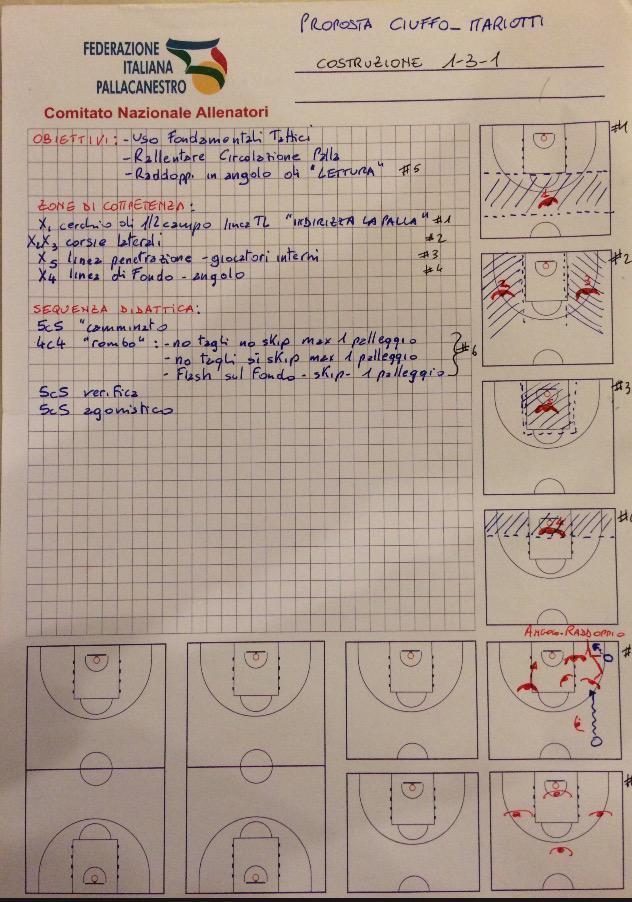 PROPOSTA CIUFFO_MARIOTTI
FEDERAZIONE
ITALIANA
PALLACANESTRO
COSTRUZIONE 1-3-1
Comitato Nazionale Allenatori
OBIETTIVI: - Uso Fondamentali Tattici
- Rallentare Circolazione Palla
- Raddoppi in angolo di "LETTURA" #5
ZONE DI COMPETENZA:
X1 cerchio di 1/2 campo linea TL "INDIRIZZA LA PALLA" #1
X2X3 corsie laterali #2
X5 linea penetrazione - giocatori interni #3
X4 linea di Fondo - angolo #4
SEQUENZA DIDATTICA:
5c5 "camminato
4c4 "rombo": - no tagli no skip max 1 palleggio
- no tagli si skip max 1 palleggio #6
- Flash sul Fondo - skip - 1 palleggio
5c5 verifica
5c5 agonistico
#1
1
#2
2 3
#3
5
#
4
ANGOLO-RADDOPPIO
#
#